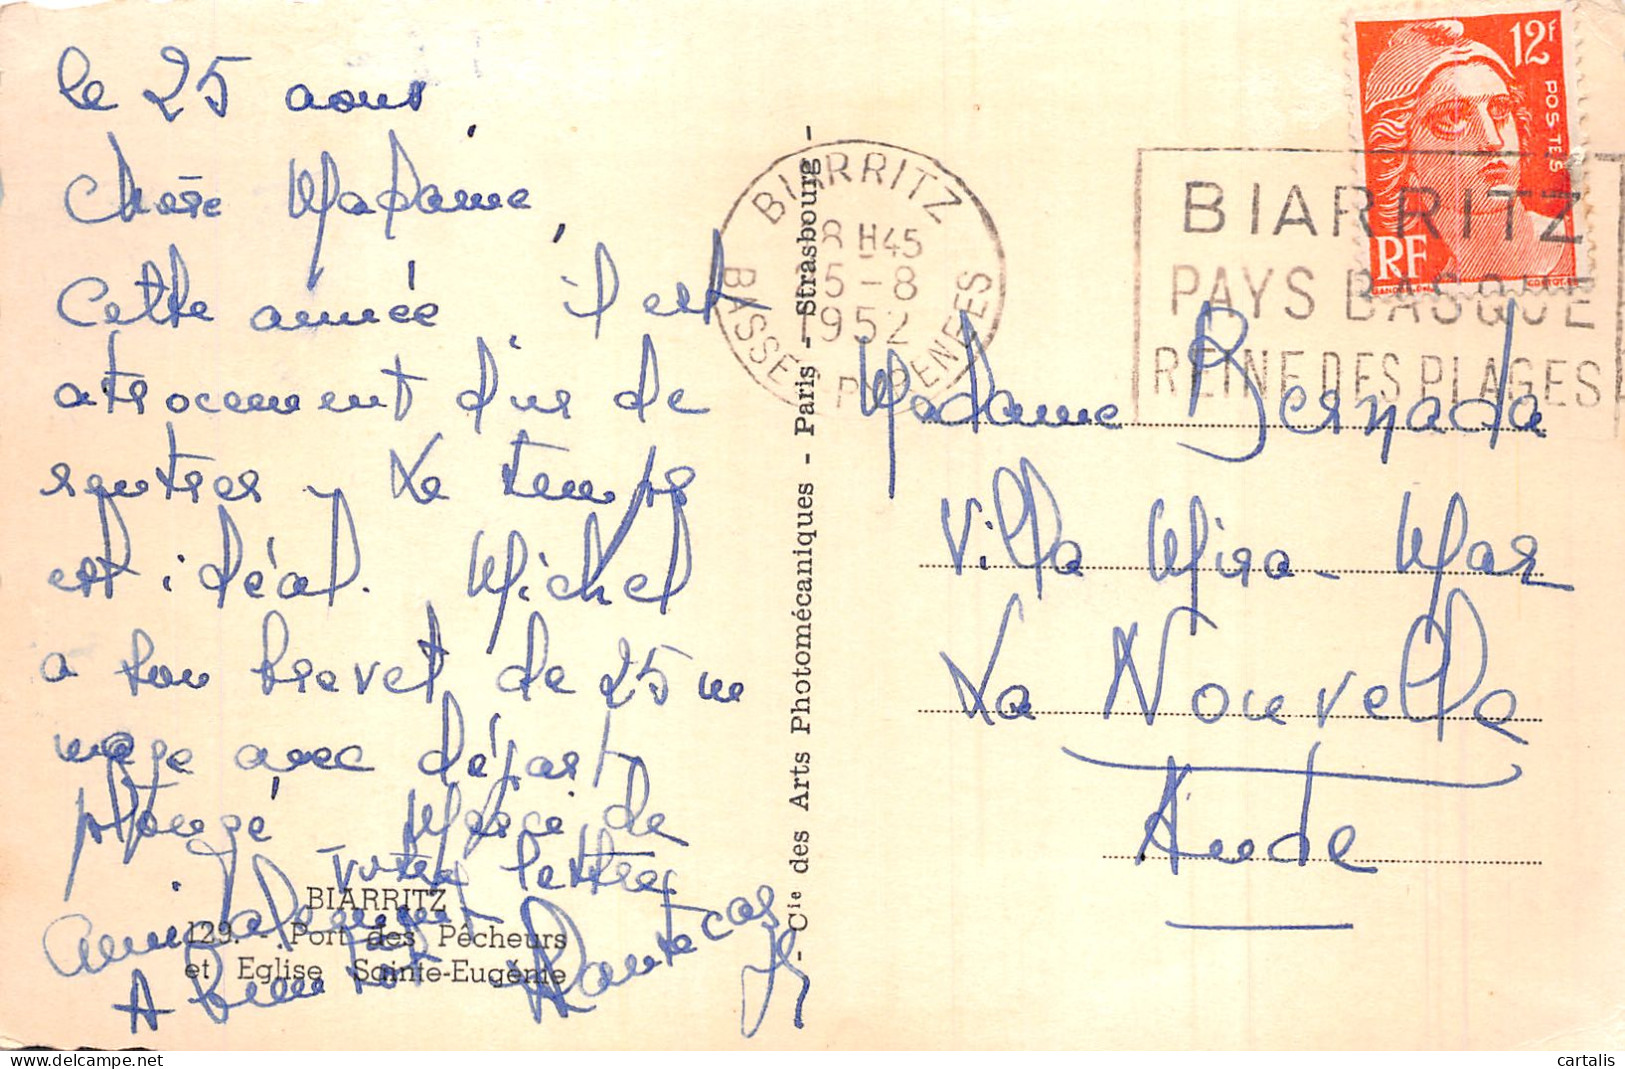 le 25 aout
Chère Madame,
Cette année, il est
atrocement dur de
rentrer – Le temps
est idéal. Michel
a son brevet de 25 m
nage avec départ
plongé Merci de
votre lettre
Amicalement
A bientôt
BIARRITZ
129. - Port des Pêcheurs
et Eglise Sainte-Eugénie
- Cie des Arts Photomécaniques - Paris - Strasbourg -
BIARRITZ
8 H45
5-8
1952
BASSES PYRENEES
BIARRITZ
PAYS BASQUE
REINE DES PLAGES
12F
POSTES
RF
Madame Bernada
Villa Mira-Mar
La Nouvelle
Aude
cartalis